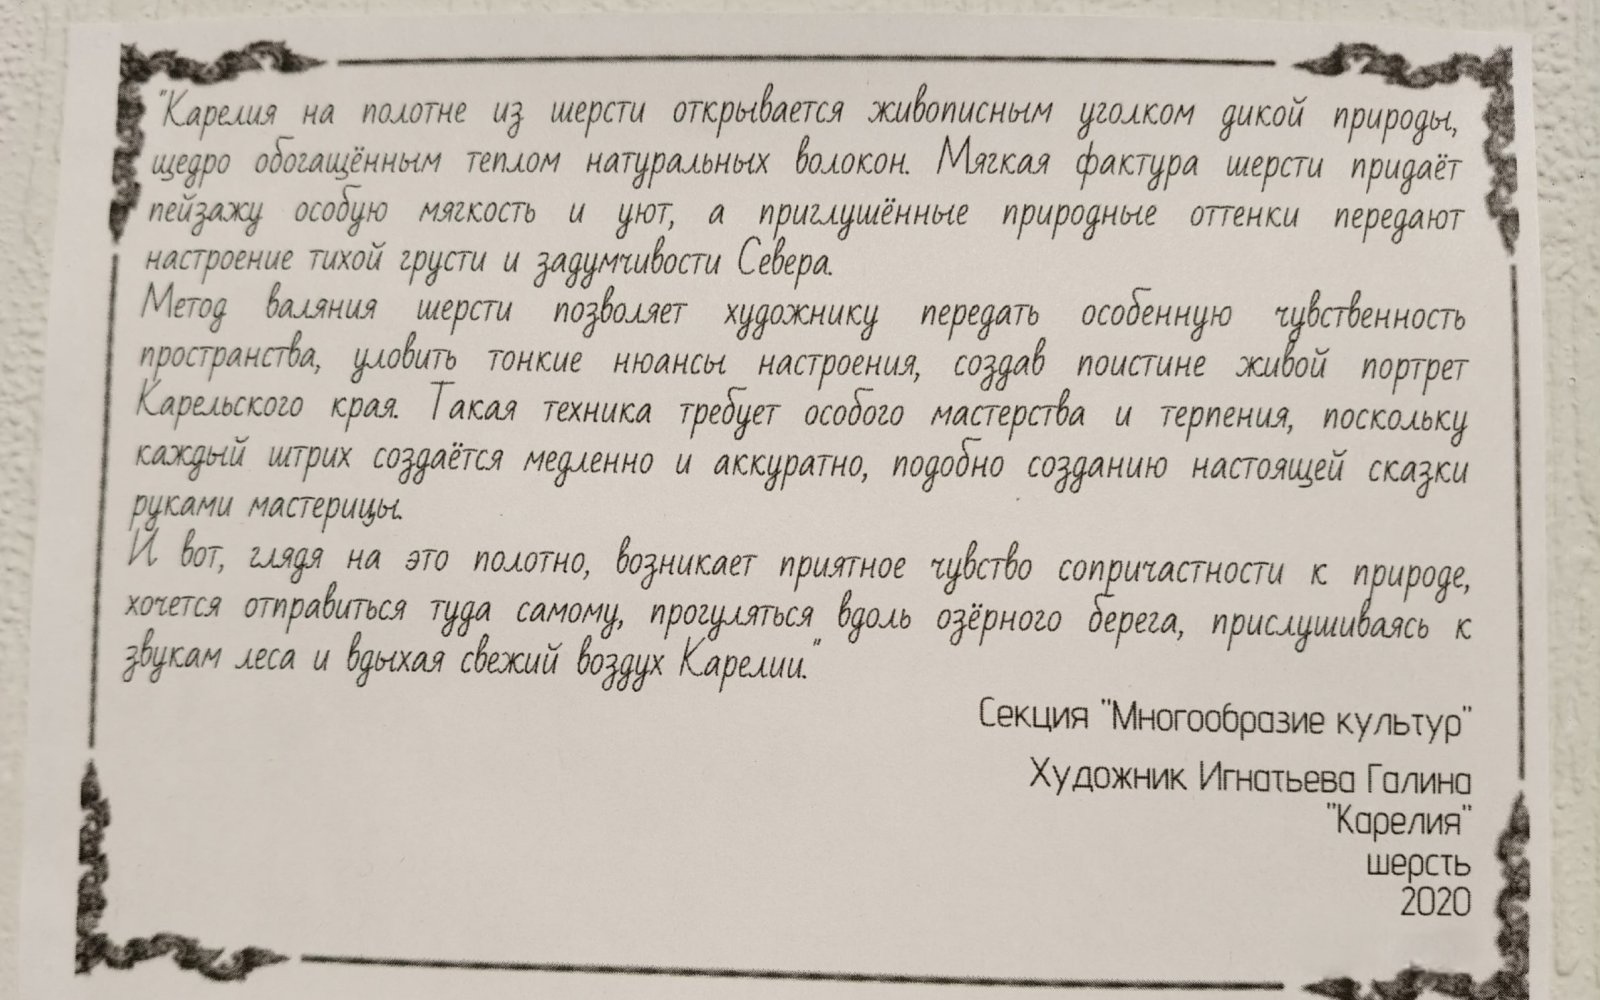 "Карелия на полотне из шерсти открывается живописным уголком дикой природы,
щедро обогащённым теплом натуральных волокон. Мягкая фактура шерсти придаёт
пейзажу особую мягкость и уют, а приглушённые природные оттенки передают
настроение тихой грусти и задумчивости Севера.
Метод валяния шерсти позволяет художнику передать особенную чувственность
пространства, уловить тонкие нюансы настроения, создав поистине живой портрет
Карельского края. Такая техника требует особого мастерства и терпения, поскольку
каждый штрих создаётся медленно и аккуратно, подобно созданию настоящей сказки
руками мастерицы.
И вот, глядя на это полотно, возникает приятное чувство сопричастности к природе,
хочется отправиться туда самому, прогуляться вдоль озёрного берега, прислушиваясь к
звукам леса и вдыхая свежий воздух Карелии."
Секция "Многообразие культур"
Художник Игнатьева Галина
"Карелия"
шерсть
2020